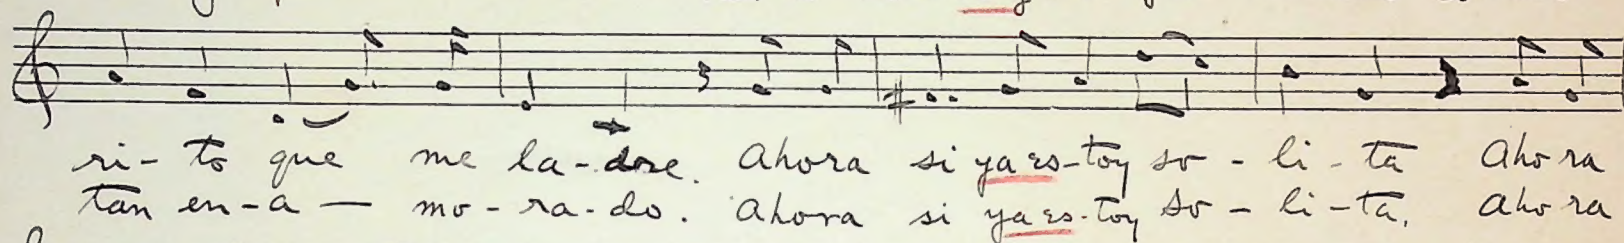 ri-to que me la-dre. Ahora si ya es-toy so-li-ta Ahora
tan en-a-mo-ra-do. Ahora si ya es-toy so-li-ta, Ahora